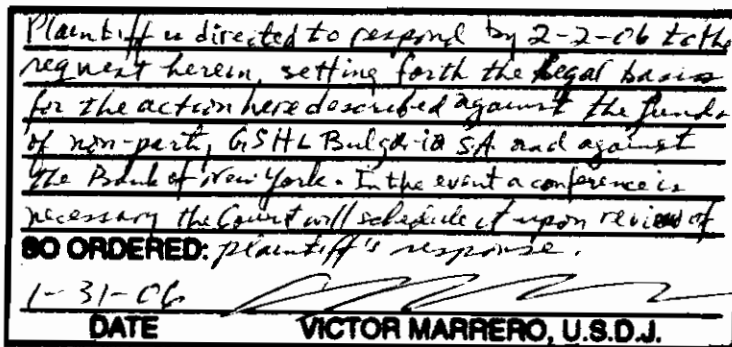 Plaintiff is directed to respond by 2-2-06 to the
request herein, setting forth the legal basis
for the action here described against the funds
of non-party GSHL Bulgaria SA and against
the Bank of New York. In the event a conference is
necessary the Court will schedule it upon review of
SO ORDERED: plaintiff's response.
1-31-06
DATE VICTOR MARRERO, U.S.D.J.